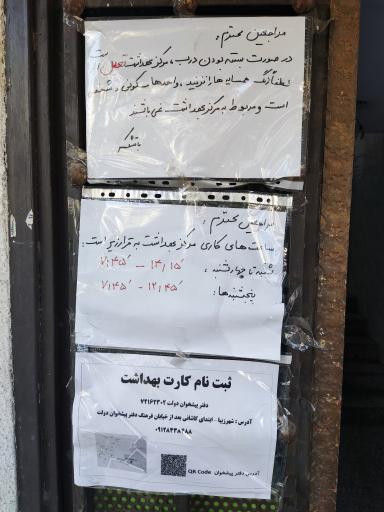 مراجعین محترم:
در صورت بسته بودن درب، مرکز بهداشت تعطیل است
لطفاً زنگ همسایه ها را نزنید، واحدهای مسکونی
است و مربوط به مرکز بهداشت نمی باشند
باتشکر
مراجعین محترم:
ساعت های کاری مرکز بهداشت به قرار زیر است:
شنبه تا چهارشنبه: ۷:۴۵ - ۱۴:۱۵
پنجشنبه ها: ۷:۴۵ - ۱۲:۴۵
ثبت نام کارت بهداشت
دفتر پیشخوان دولت ۷۲۱۶۲۳۰۲
آدرس: شهرزیبا - ابتدای کاشانی بعد از خیابان فرهنگ دفتر پیشخوان دولت
آدرس دفتر پیشخوان QR Code